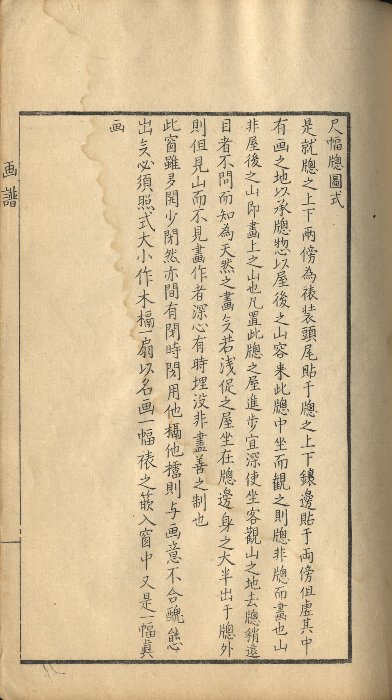 尺幅牕圖式
是就牕之上下兩傍為裱装頭尾貼于牕之上下鑲邊貼于両傍但虛其中
有画之地以承牕惣以屋後之山容来此牕中坐而觀之則牕非牕而畫也山
非屋後之山即畫上之山也凡置此牕之屋進步宜深使坐客觀山之地去牕稍遠
目者不問而知為天然之畫矣若浅促之屋坐在牕邊身之大半出于牕外
則但見山而不見畫作者深心有時埋没非盡善之制也
此窗雖多開少閉然亦間有閉時閉用他槅他㯰則与画意不合醜態
出矣必須照式大小作木槅一扇以名画一幅裱之嵌入窗中又是一幅真
画
画譜